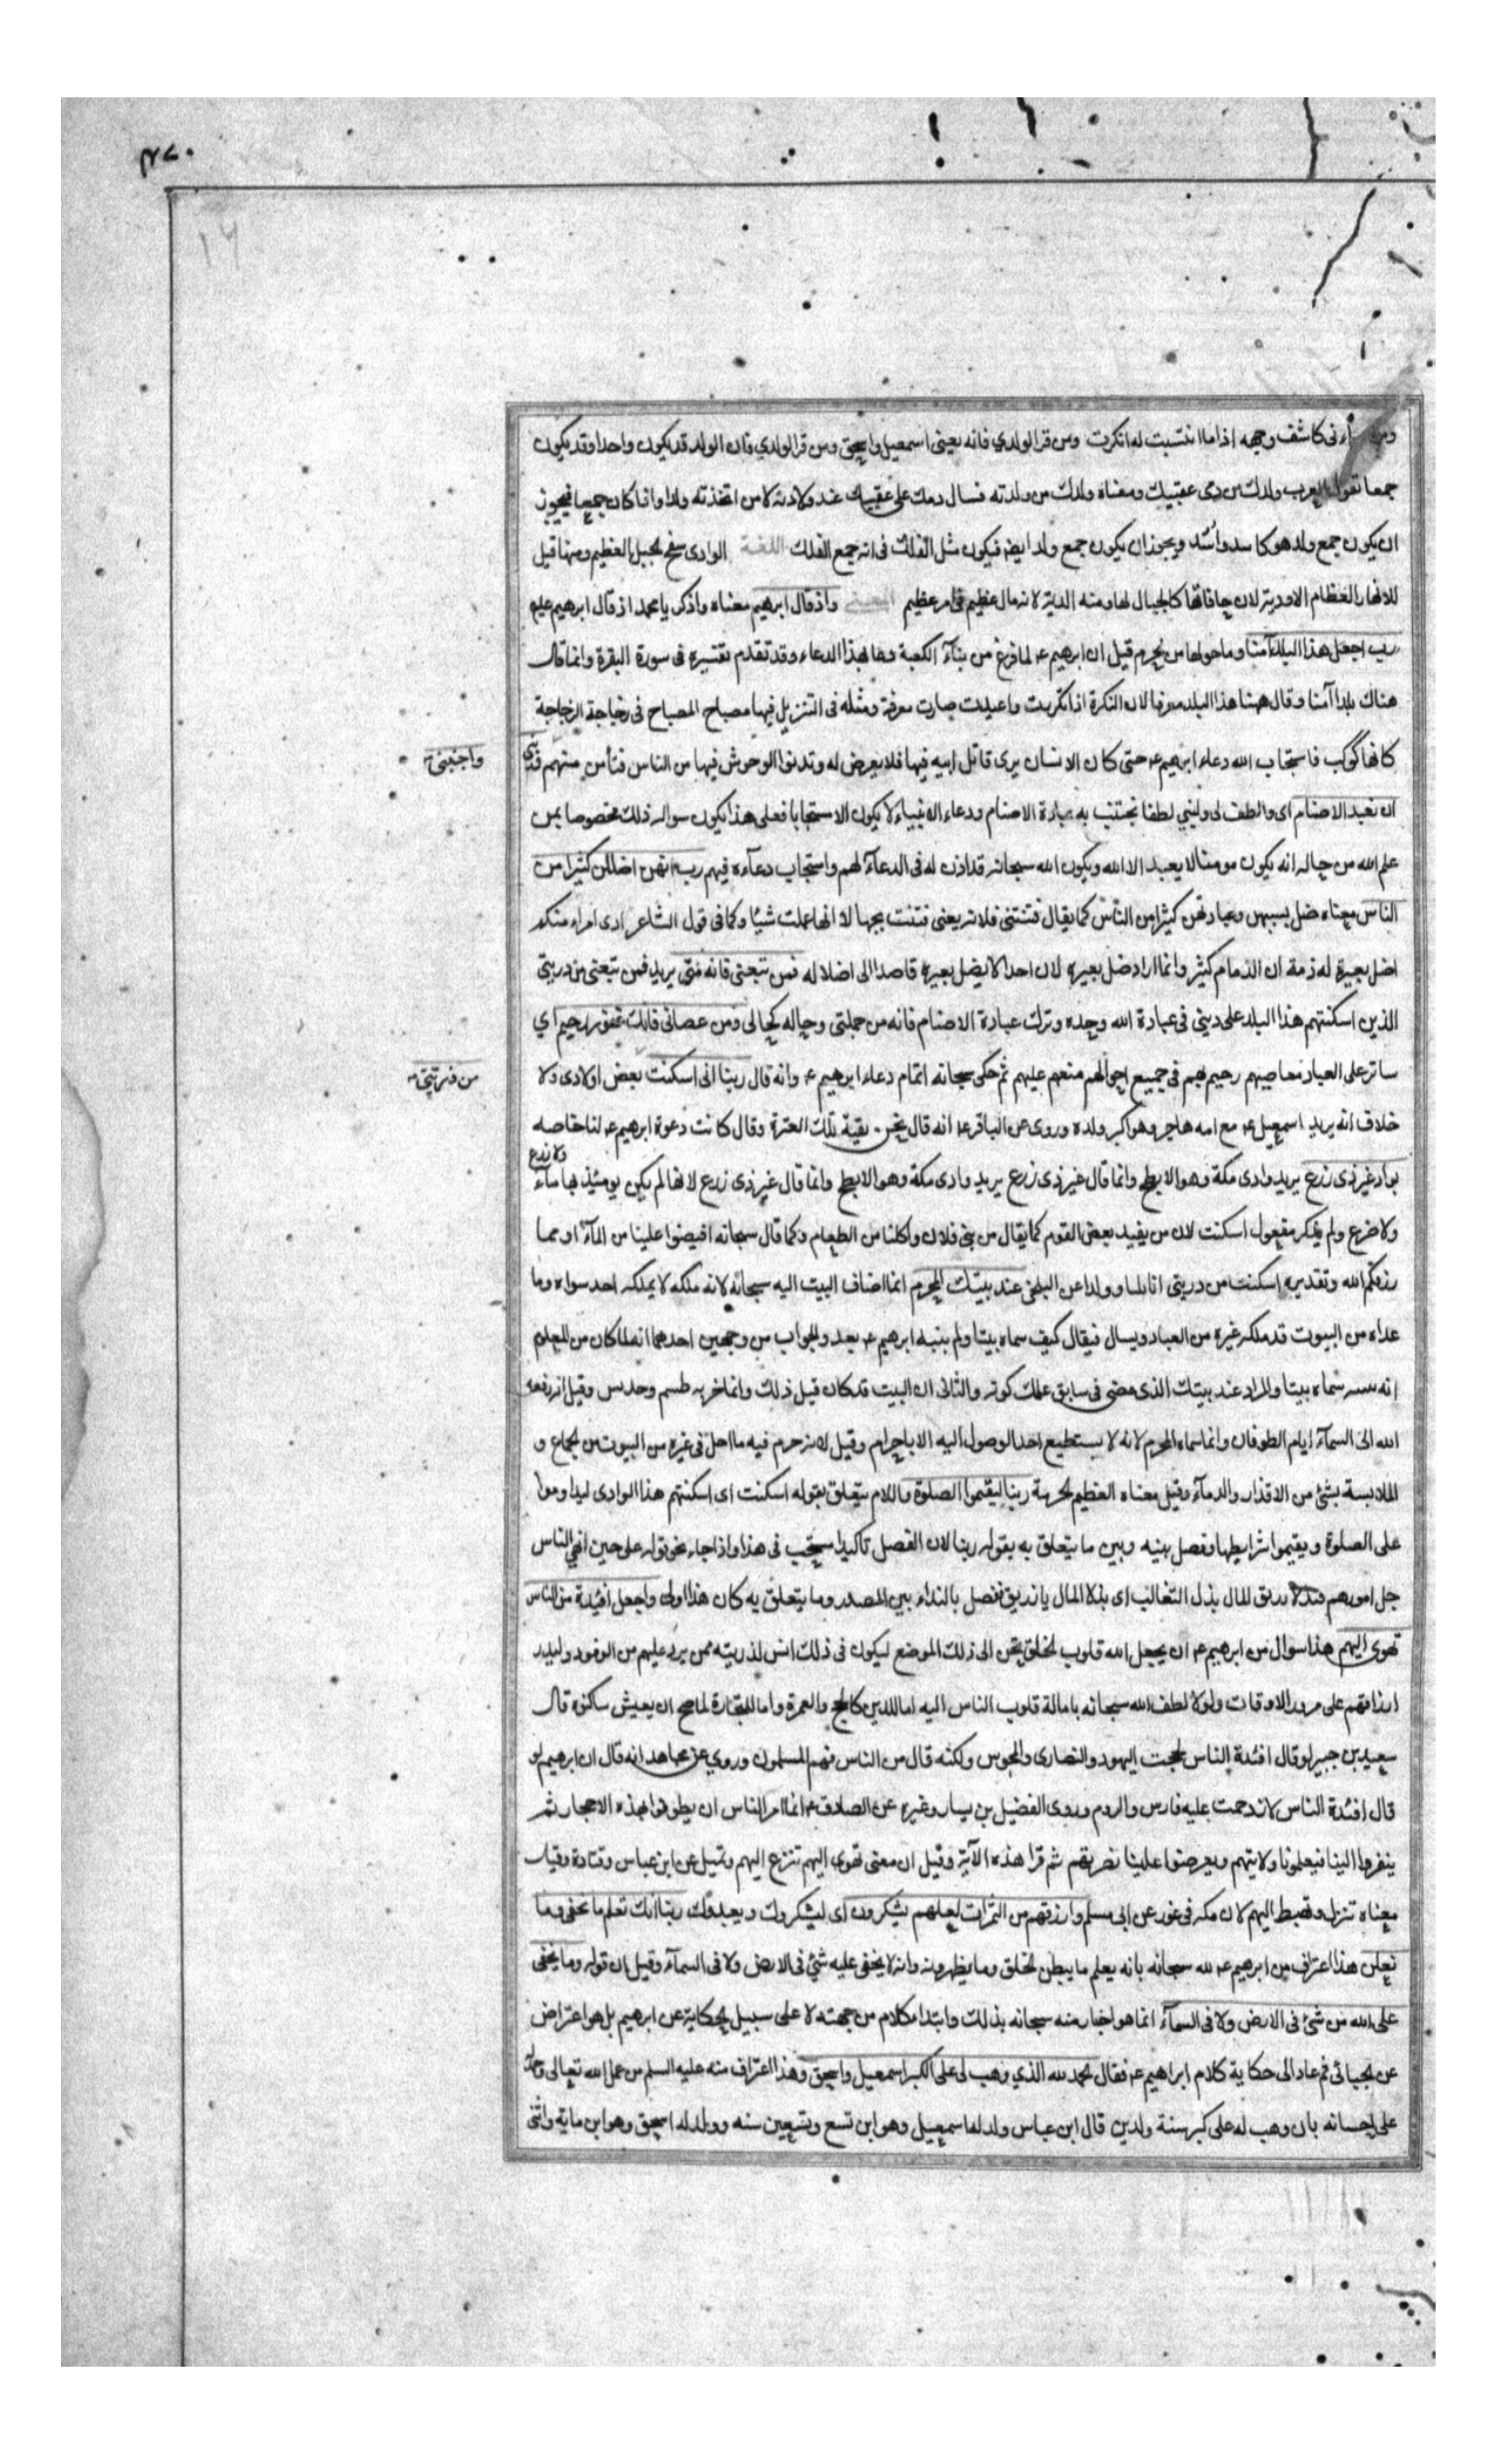 ٤٧٠
١٦
ومن كاشف وجهه اذا ما انتسبت له انكرت ومن قرا لولدي فانه يعنى اسمعيل واسحق ومن قرا لولدي فان الولد قد يكون واحدا وقد يكون
جمعا تقول العرب ولدك من دمى عقبيك ومعناه ولدك من ولدته فسال دمك على عقبيك عند ولادته لا من اتخذته ولدا واذا كان جمعا فيجوز
ان يكون جمع ولد هو كاسد واُسْد ويجوز ان يكون جمع ولد ايضا فيكون مثل الفلك فى انه جمع الفلك اللغة الوادى سفح الجبل العظيم ومنها قيل
للانهار العظام الاودية لان حافاتها كالجبال لها ومنه الدية لانه مال عظيم فى امر عظيم المعنى واذ قال ابرهيم معناه واذكر يا محمد اذ قال ابرهيم عليه
رب اجعل هذا البلد آمنا وما حولها من الحرم قيل ان ابرهيم ع لما فرغ من بناء الكعبة دعا بهذا الدعاء وقد تقدم تفسيره فى سورة البقرة وانما قال
هناك بلدا آمنا وقال ههنا هذا البلد معرفا لان النكرة اذا تكررت واعيدت صارت معرفة ومثله فى التنزيل فيها مصباح المصباح فى زجاجة الزجاجة
كانها كوكب فاستجاب الله دعاء ابرهيم ع حتى كان الانسان يرى قاتل ابيه فيها فلا يعرض له وتدنوا الوحوش فيها من الناس فتأمن منهم
واجنبنى
وبنى
ان نعبد الاصنام اى والطف لى ولبني لطفا نجتنب به عبادة الاصنام ودعاء الانبياء لا يكون الا مستجابا فعلى هذا يكون سواله ذلك مخصوصا بمن
علم الله من حاله انه يكون مومنا لا يعبد الا الله ويكون الله سبحانه قد اذن له فى الدعاء لهم واستجاب دعآءه فيهم رب انهن اضللن كثيرا من
الناس معناه ضل بسببهن وعبادتهن كثير من النّاس كما يقال فتنتنى فلانة يعنى فتنت بحبها لا انها عملت شيئا وكما فى قول الشاعر
اضل بعيره له ذمة ان الذمام كثير وانما اراد ضل بعيره لان احدا لا يضل بعيره قاصدا الى اضلاله فمن تبعنى فانه منى يريد فمن تبعنى من ذريتى
الذين اسكنتهم هذا البلد على دينى فى عبادة الله وحده وترك عبادة الاصنام فانه من جملتى وحاله كحالى ومن عصانى فانك غفور رحيم اي
ساتر على العباد معاصيهم رحيم بهم فى جميع احوالهم منعم عليهم ثم حكى سبحانه اتمام دعاء ابرهيم ع وانه قال ربنا انى اسكنت بعض اولادى ولا
من ذريتى
خلاف انه يريد اسمعيل ع مع امه هاجر وهو اكبر ولده وروى عن الباقر ع انه قال نحن بقية تلك العترة وقال كانت دعوة ابرهيم ع لنا خاصه
بواد غير ذى زرع يريد وادى مكة وهو الابطح وانما قال غير ذى زرع يريد وادى مكة وهو الابطح وانما قال غير ذى زرع لانها لم يكن يومئذ بها مآء
ولا زرع
ولا ضرع ولم يذكر مفعول اسكنت لان من يفيد بعض القوم كما يقال من بنى فلان واكلنا من الطعام وكما قال سبحانه افيضوا علينا من الماء او مما
رزقكم الله وتقديره اسكنت من ذريتى اناسا وولدا عن البلخى عند بيتك المحرم انما اضاف البيت اليه سبحانه لانه ملكه لا يملكه احد سواه وما
عداه من البيوت قد ملكه غيره من العباد ويسال فيقال كيف سماه بيتا ولم يبنيه ابرهيم ع بعد والجواب من وجهين احدهما انه لما كان من المعلوم
انه سماه بيتا والمراد عند بيتك الذى مضى فى سابق علمك كونه والثانى ان البيت قد كان قبل ذلك وانما خربه طسم وجديس وقيل انه رفعه
الله الى السمآء ايام الطوفان وانما سماه المحرم لانه لا يستطيع احد الوصول اليه الا باحرام وقيل لانه حرم فيه ما احل فى غيره من البيوت من الجماع و
الملابسة بشئ من الاقذار والدمآء وقيل معناه العظيم الحرمة ربنا ليقيموا الصلوة واللام يتعلق بقوله اسكنت اى اسكنتهم هذا الوادى ليداوموا
على الصلوة ويقيموا شرايطها وفصل بينه وبين ما يتعلق به بقوله ربنا لان الفصل تاكيدا مستحب فى هذا واذا جاء نحو قوله على حين الهى الناس
جل امورهم فندلا زريق المال ندل الثعالب اى ندلا المال يا زريق ففصل بالنداء بين المصدر وما يتعلق به كان هذا اولى واجعل افئدة من الناس
تهوى اليهم هذا سوال من ابرهيم ع ان يجعل الله قلوب الخلق تحن الى ذلك الموضع ليكون فى ذلك انس لذريته ممن يرد عليهم من الوفود وليدر
ارزاقهم على مرور الاوقات ولولا لطف الله سبحانه بامالة قلوب الناس اليه اما للدين كالحج والعمرة واما للتجارة لما صح ان يعيش ساكنوه قال
سعيد بن جبير لو قال افئدة الناس لحجت اليهود والنصارى والمجوس ولكنه قال من الناس فهم المسلمون وروي عن مجاهد انه قال ان ابرهيم لو
قال افئدة الناس لازدحمت عليه فارس والروم وروى الفضيل بن يسار وغيره عن الصادق ع انما امر الناس ان يطوفوا بهذه الاحجار ثم
ينفروا الينا فيعلمونا ولايتهم ويعرضوا علينا نصرتهم ثم قرا هذه الآية وقيل ان معنى تهوى اليهم تنزع اليهم وتميل عن ابن عباس وقتادة وقيل
معناه تنزل وتهبط اليهم لان مكه فى غور عن ابى مسلم وارزقهم من الثمرات لعلهم يشكرون اى ليشكروك ويعبدوك ربنا انك تعلم ما نخفى وما
نعلن هذا اعتراف من ابرهيم ع لله سبحانه بانه يعلم ما يبطن الخلق وما يظهرونه وانه لا يخفى عليه شئ فى الارض ولا فى السمآء وقيل ان قوله وما يخفى
على الله من شئ فى الارض ولا فى السمآء انما هو اخبار منه سبحانه بذلك وابتدا كلام من جهته لا على سبيل الحكاية عن ابرهيم بل هو اعتراض
عن الجبائى ثم عاد الى حكاية كلام ابراهيم ع فقال الحمد لله الذي وهب لى على الكبر اسمعيل واسحق وهذا اعتراف منه عليه السلم من عمل الله تعالى
على احسانه بان وهب له على كبر سنه ولدين قال ابن عباس ولد له اسمعيل وهو ابن تسع وتسعين سنه وولد له اسحق وهو ابن ماية واثنى